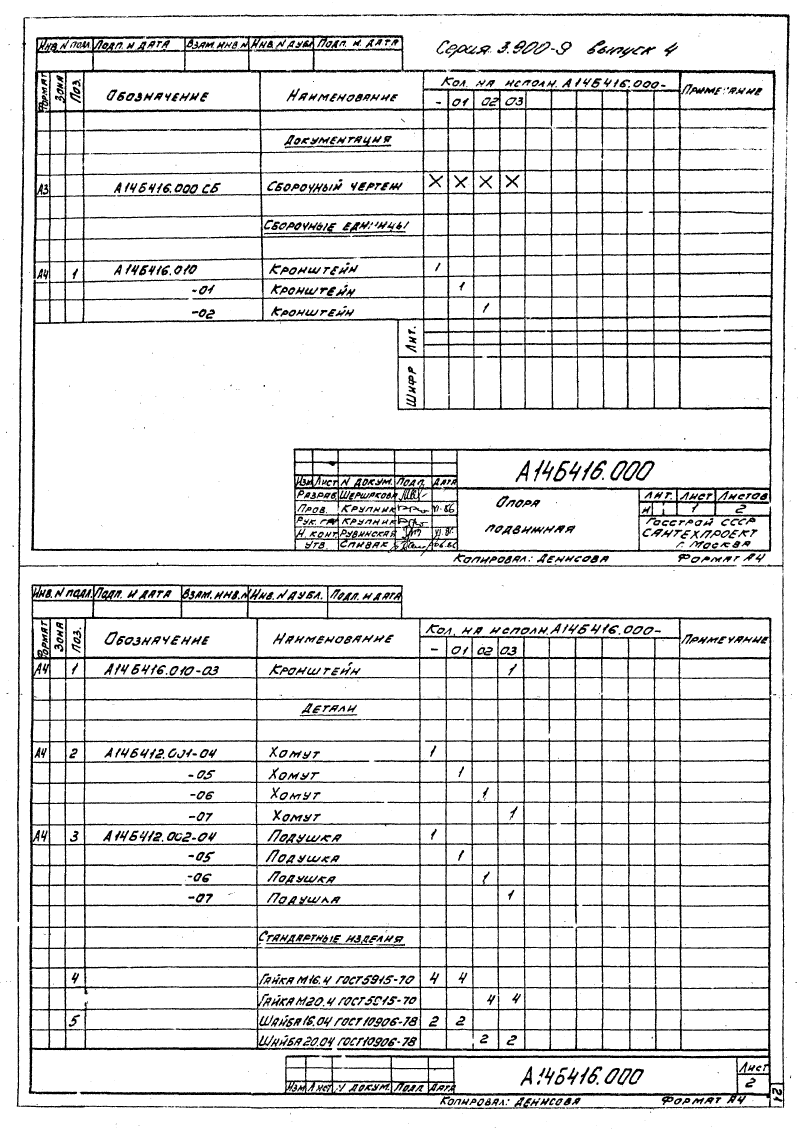 Инв. N подл. Подп. и дата Взам. инв. N Инв. N дубл. Подп. и дата
Серия 3.900-9 выпуск 4
Формат Зона Поз. Обозначение Наименование Кол. на исполн. А14Б416.000- Примечание
- 01 02 03
Документация
А3 А14Б416.000 СБ Сборочный чертеж X X X X
Сборочные единицы
А4 1 А14Б416.010 Кронштейн 1
-01 Кронштейн 1
-02 Кронштейн 1
Лит.
Шифр
А14Б416.000
Изм Лист N докум. Подп. Дата
Разраб. Шершакова
Пров. Крупник VI.86
Рук. гр. Крупник
Н. конт Рувинская
Утв. Спивак
Опора
подвижная
Лит. Лист Листов
И 1 2
Госстрой СССР
Сантехпроект
г. Москва
Копировал: Денисова Формат А4
Инв. N подл. Подп. и дата Взам. инв. N Инв. N дубл. Подп. и дата
Формат Зона Поз. Обозначение Наименование Кол. на исполн. А14Б416.000- Примечание
- 01 02 03
А4 1 А14Б416.010-03 Кронштейн 1
Детали
А4 2 А14Б412.001-04 Хомут 1
-05 Хомут 1
-06 Хомут 1
-07 Хомут 1
А4 3 А14Б412.002-04 Подушка 1
-05 Подушка 1
-06 Подушка 1
-07 Подушка 1
Стандартные изделия
4 Гайка М16.4 ГОСТ 5915-70 4 4
Гайка М20.4 ГОСТ 5915-70 4 4
5 Шайба 16.04 ГОСТ 10906-78 2 2
Шайба 20.04 ГОСТ 10906-78 2 2
Изм Лист N докум. Подп. Дата
А14Б416.000
Лист
2
Копировал: Денисова Формат А4
21